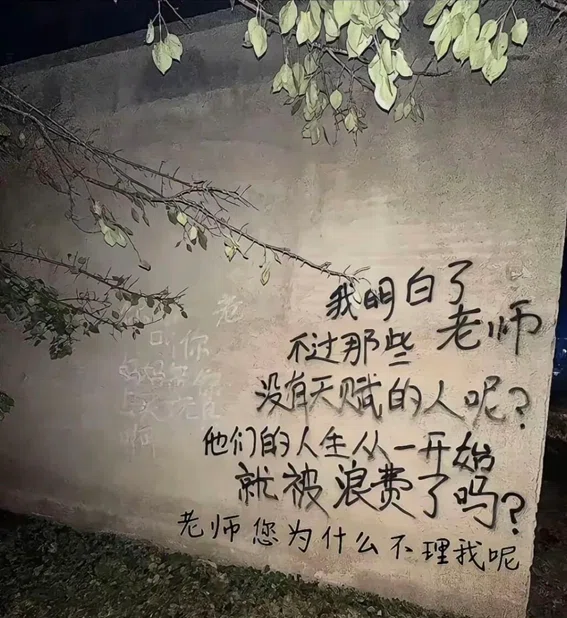 我明白了
老师
不过那些
没有天赋的人呢?
他们的人生从一开始
就被浪费了吗?
老师您为什么不理我呢
叫你
妈妈
啊